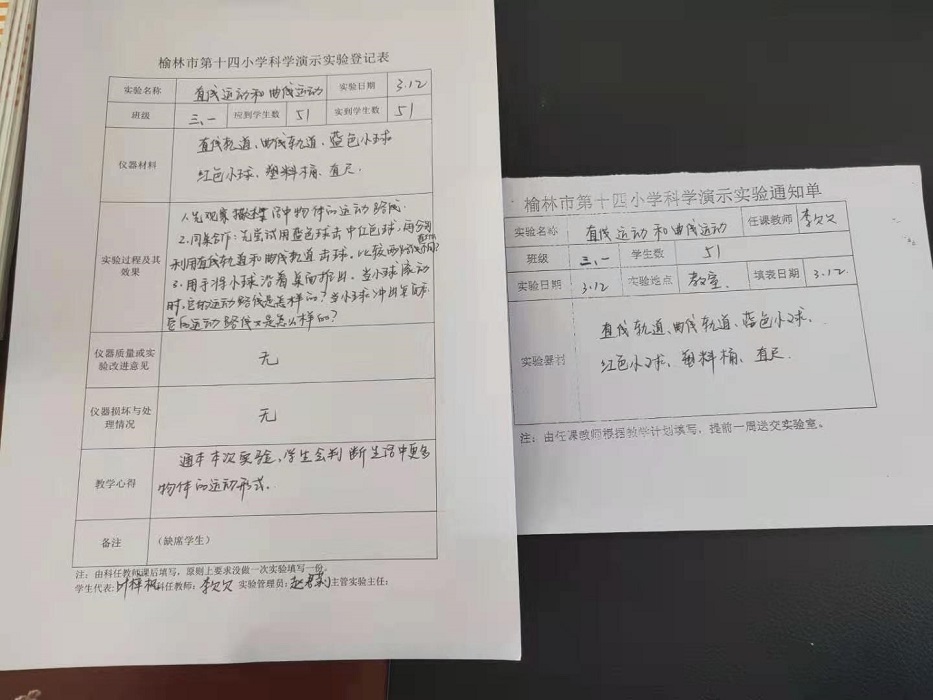 榆林市第十四小学科学演示实验登记表
实验名称 直线运动和曲线运动 实验日期 3.12
班级 三、一 应到学生数 51 实到学生数 51
仪器材料
直线轨道、曲线轨道、蓝色小球
红色小球、塑料桶、直尺.
实验过程及其效果
1.先观察 生活中物体的运动路线.
2.同桌合作:先尝试用蓝色球击中红色球,再分别
利用直线轨道和曲线轨道击球,比较两次
3.用手将小球沿着桌面推出,当小球滚动
时,它的运动路线是怎样的?当小球冲出桌面后
它的运动路线又是怎么样的?
仪器质量或实验改进意见 无
仪器损坏与处理情况 无
教学心得
通本本次实验、学生会判断生活中更多
物体的运动形式.
备注 (缺席学生)
注:由科任教师课后填写,原则上要求没做一次实验填写一份。
学生代表: 科任教师:李欠欠 实验管理员: 主管实验主任:
榆林市第十四小学科学演示实验通知单
实验名称 直线运动和曲线运动 任课教师 李欠欠
班级 三、一 学生数 51
实验日期 3.12 实验地点 教室. 填表日期 3.12.
实验器材
直线轨道、曲线轨道、蓝色小球.
红色小球、塑料桶、直尺.
注:由任课教师根据教学计划填写,提前一周送交实验室。